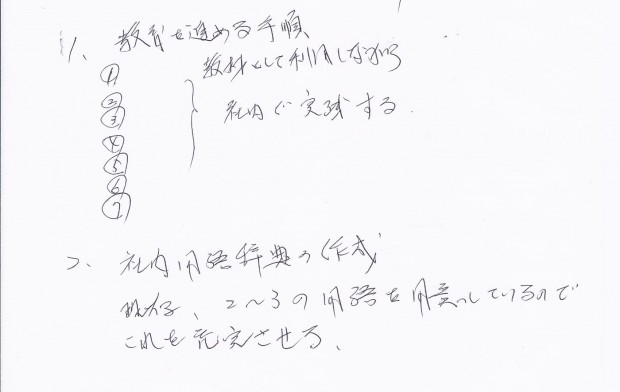 1、教育を進める手順
① 教材として利用しながら
②
③ 社内で実践する.
④
⑤
⑥
⑦
2、社内用語辞典の作成
現在、2〜3の用語を用意しているので
これを充実させる、